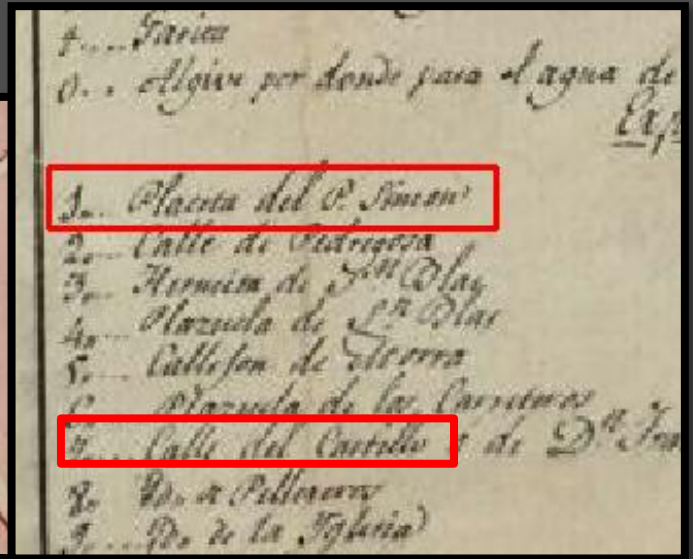 0.. Algive por donde pasa el agua de
1... Placeta del P. Simon
2... Calle de Pedregosa
3... Hermita de Sn Blas
4... Plazuela de Sn Blas
5... Callejon de
6... Plazuela de los Carreteros
7.... Calle del Castillo o de Dn Fran
8.
9.... Yd. de la Yglesia